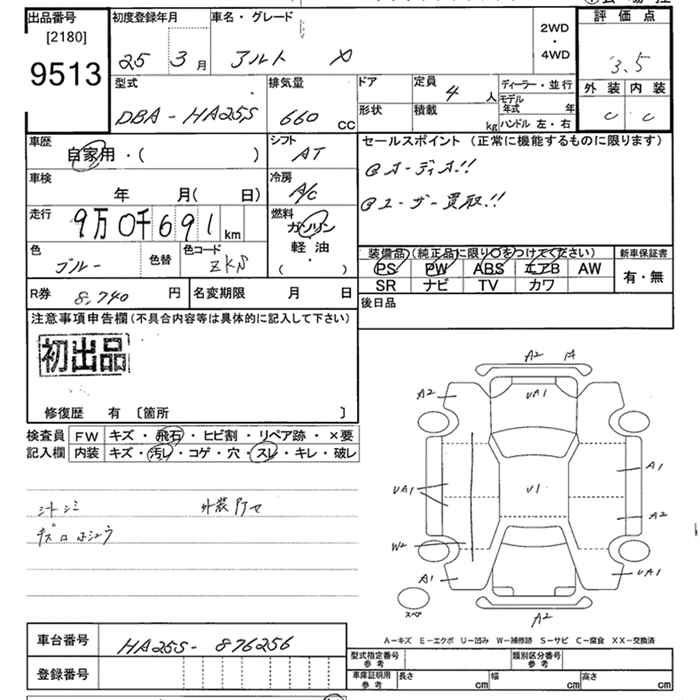 出品番号 初度登録年月 車名・グレード 2WD・4WD 評価点
[2180]
9513
25 3月 アルト
3.5
型式 排気量 ドア 定員 4人 ディーラー・並行 外装 内装
DBA-HA25S 660 CC 形状 積載 kg モデル年式 年 C C
ハンドル 左・右
車歴 シフト セールスポイント (正常に機能するものに限ります)
自家用・( ) AT
オーディオ!!
車検 冷房
年 月( 日) A/C
ユーザー買取!!
走行 燃料
9万0千691km ガソリン
軽油
( ・ )
色 色替 色コード
ブルー ZKN
装備品 (純正品に限り○をつけてください) 新車保証書
PS PW ABS エアB AW 有・無
SR ナビ TV カワ
R券 8,740 円 名変期限 月 日
後日品
注意事項申告欄 (不具合内容等は具体的に記入して下さい)
初出品
修復歴 有 〔箇所 〕
検査員 FW キズ・飛石・ヒビ割・リペア跡・×要
記入欄 内装 キズ・汚レ・コゲ・穴・スレ・キレ・破レ
シートシミ 外装アセ
キズロホシュウ
A2 A2 UA1
A1 A2 UA1 U1
UA1 W2 A1 A2
スペア
車台番号 HA25S-876256
登録番号
A-キズ E-エクボ U-凹み W-補修跡 S-サビ C-腐食 XX-交換済
型式指定番号 参考 類別区分番号 参考
車庫証明用 参考 長さ cm 幅 cm 高さ cm